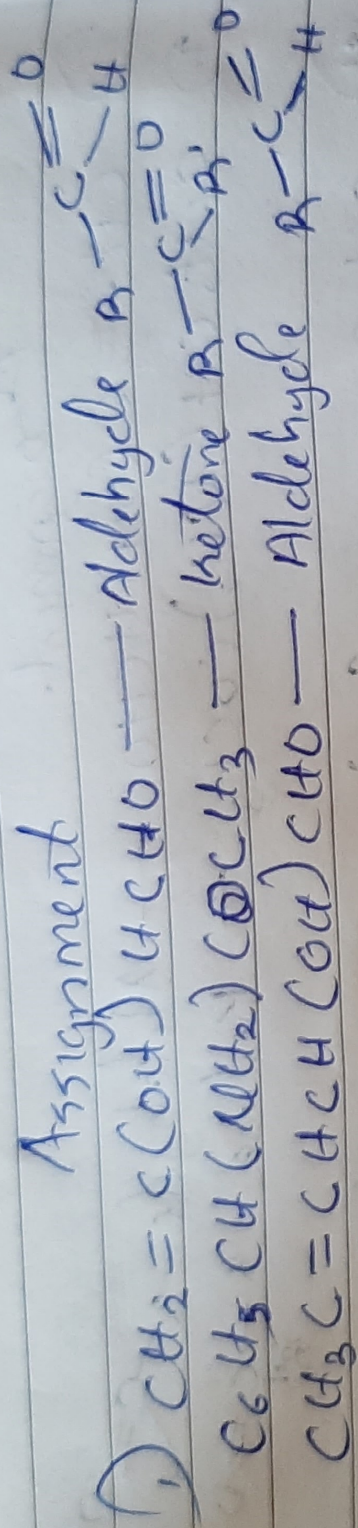 Assignment
1) CH2 = C(OH) HCHO — Aldehyde R — C = O H
C6H5CH(NH2)COCH3 — Ketone R — C = O R'
CH3C = CHCH(OH)CHO — Aldehyde R — C = O H